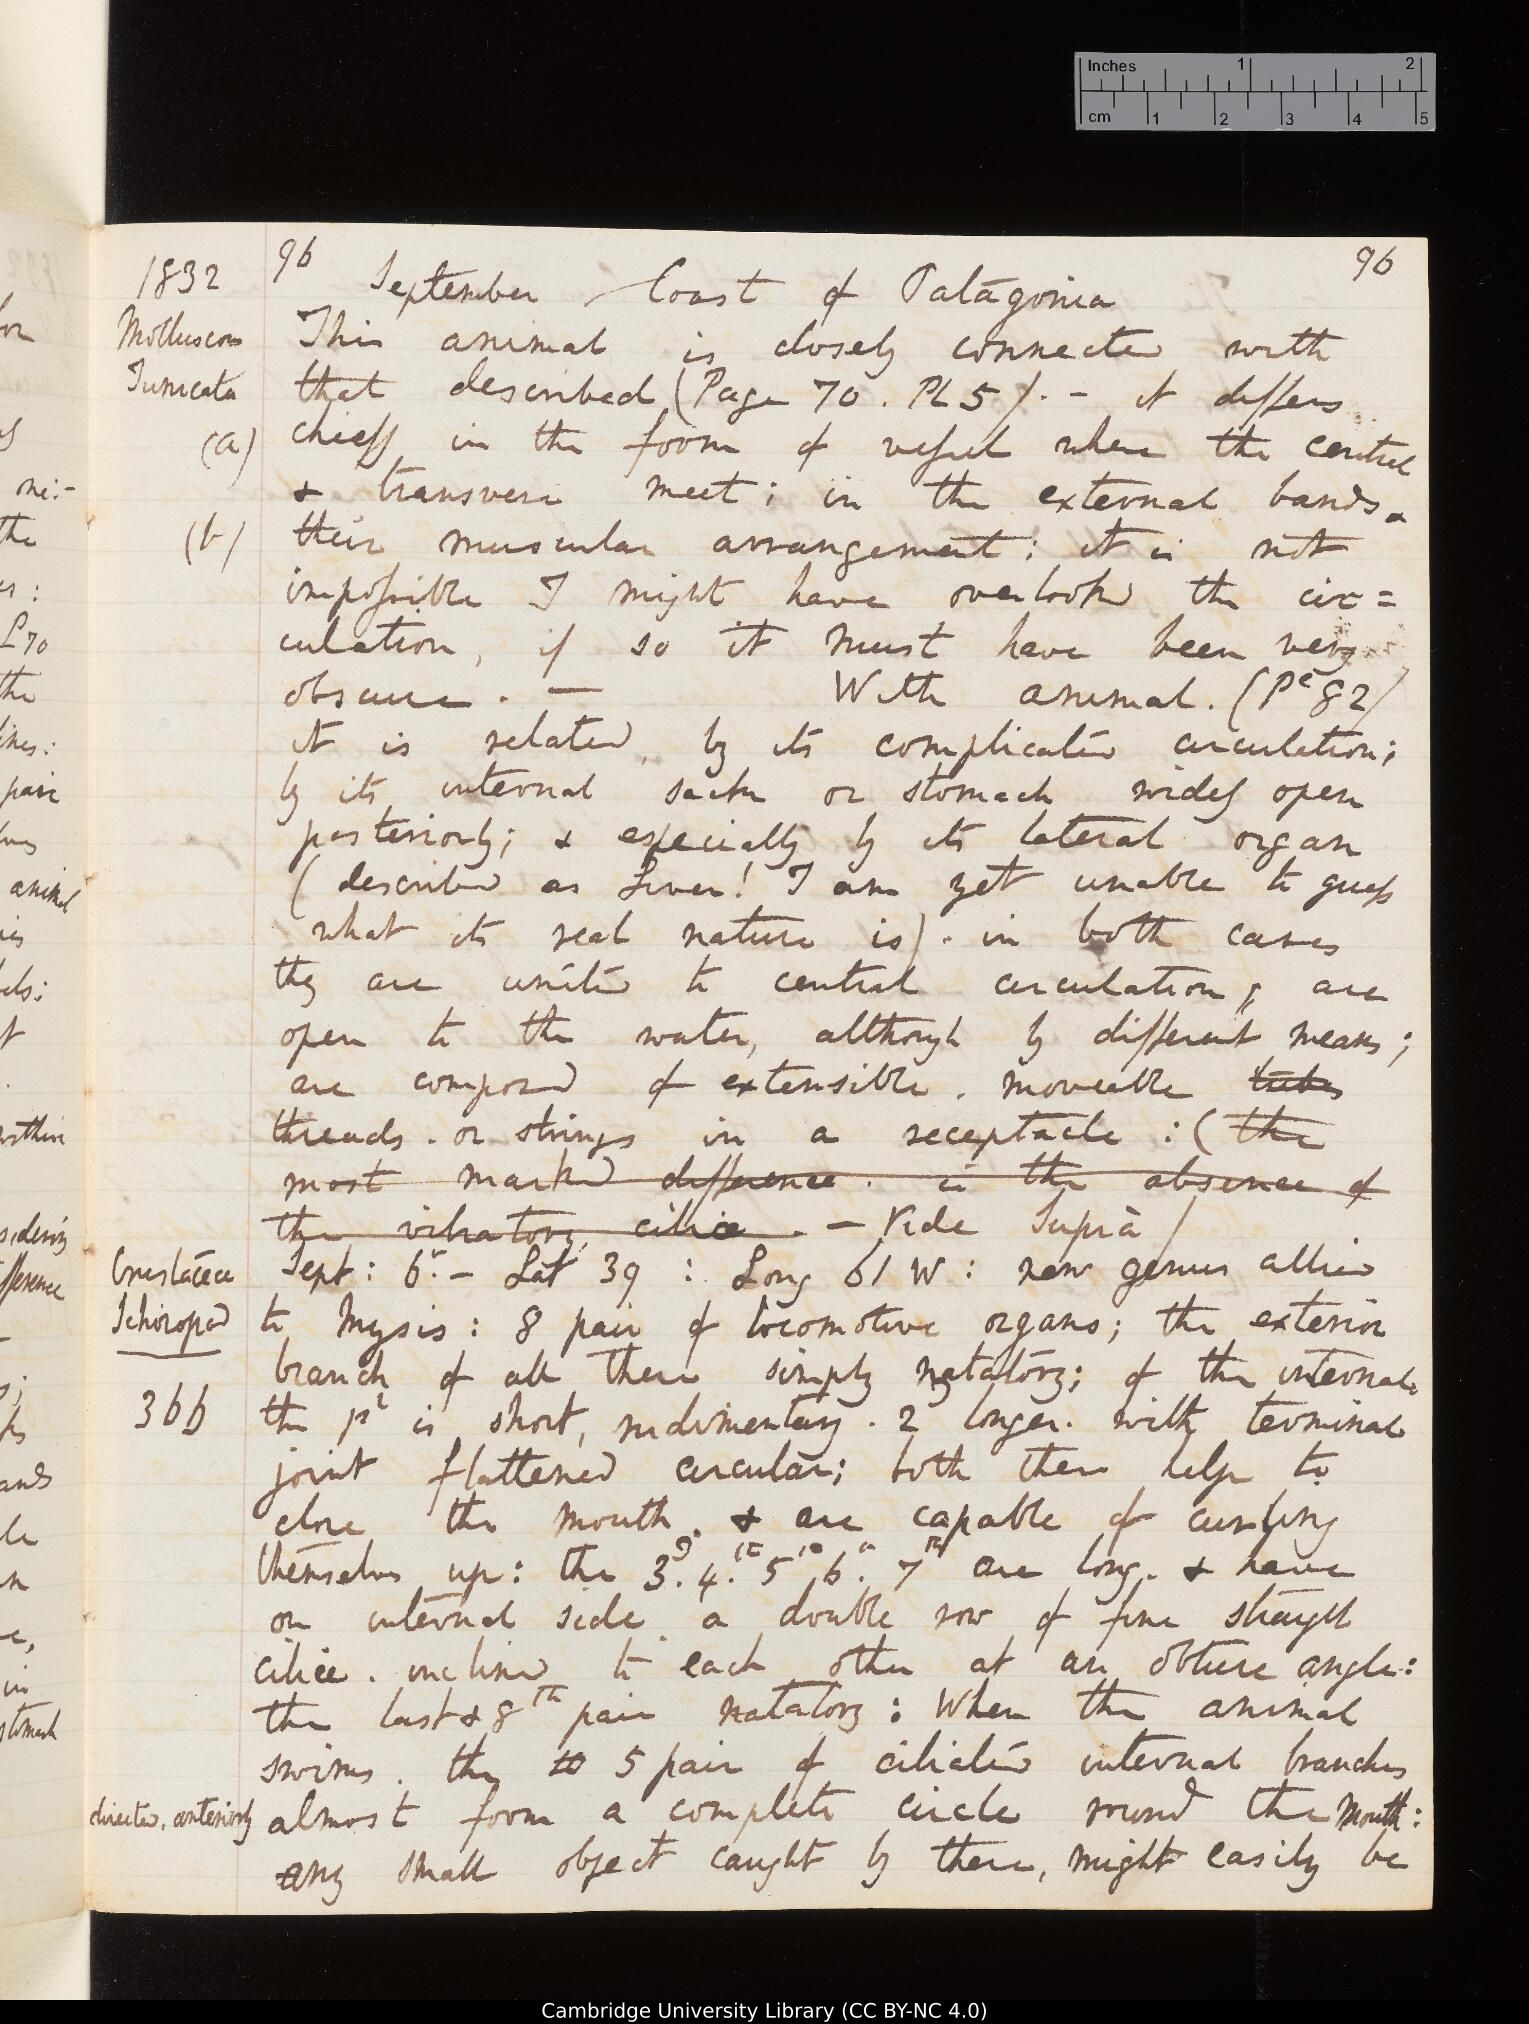 Inches 1 2
cm 1 2 3 4 5
96 96
1832 September Coast of Patagonia
Molluscous This animal is closely connected with
Tunicata that described (Page 70. Pl 5). - it differs
(a) chiefly in the form of vessel where the central
& transverse meet; in the external bands &
(b) their muscular arrangement: it is not
impossible I might have overlooked the cir=
culation, if so it must have been very
obscure. — With animal. (Pe 82)
it is related, by its complicated circulation;
by its internal sack or stomach widely open
posteriorly; & especially by its lateral organ
(described as Liver! I am yet unable to guess
what its real nature is). in both cases
they are united to central circulation; are
open to the water, although by different means;
are composed of extensible. moveable tubes
threads. or strings in a receptacle: (the
most marked difference. is the absence of
the vibratory ciliæ. - Vide Supra)
Crustacea Sept: 6th. - Lat 39 : Long 61 W: new genus allied
Schizopod to Mysis: 8 pair of locomotive organs; the exterior
branch of all these simply natatory; of the internal,
366 the 1st is short, rudimentary. 2 longer. with terminal
joint flattened circular; both these help to
close the mouth. & are capable of curling
themselves up: the 3d. 4th. 5th 6th. 7th are long. & have
on internal side. a double row of fine straight
ciliæ. inclined to each other at an obtuse angle:
the last & 8th pair natatory: When the animal
swims. the 10 5 pair of ciliated internal branches
directed, anteriorly almost form a complete circle round the mouth:
any small object caught by these, might easily be
Cambridge University Library (CC BY-NC 4.0)